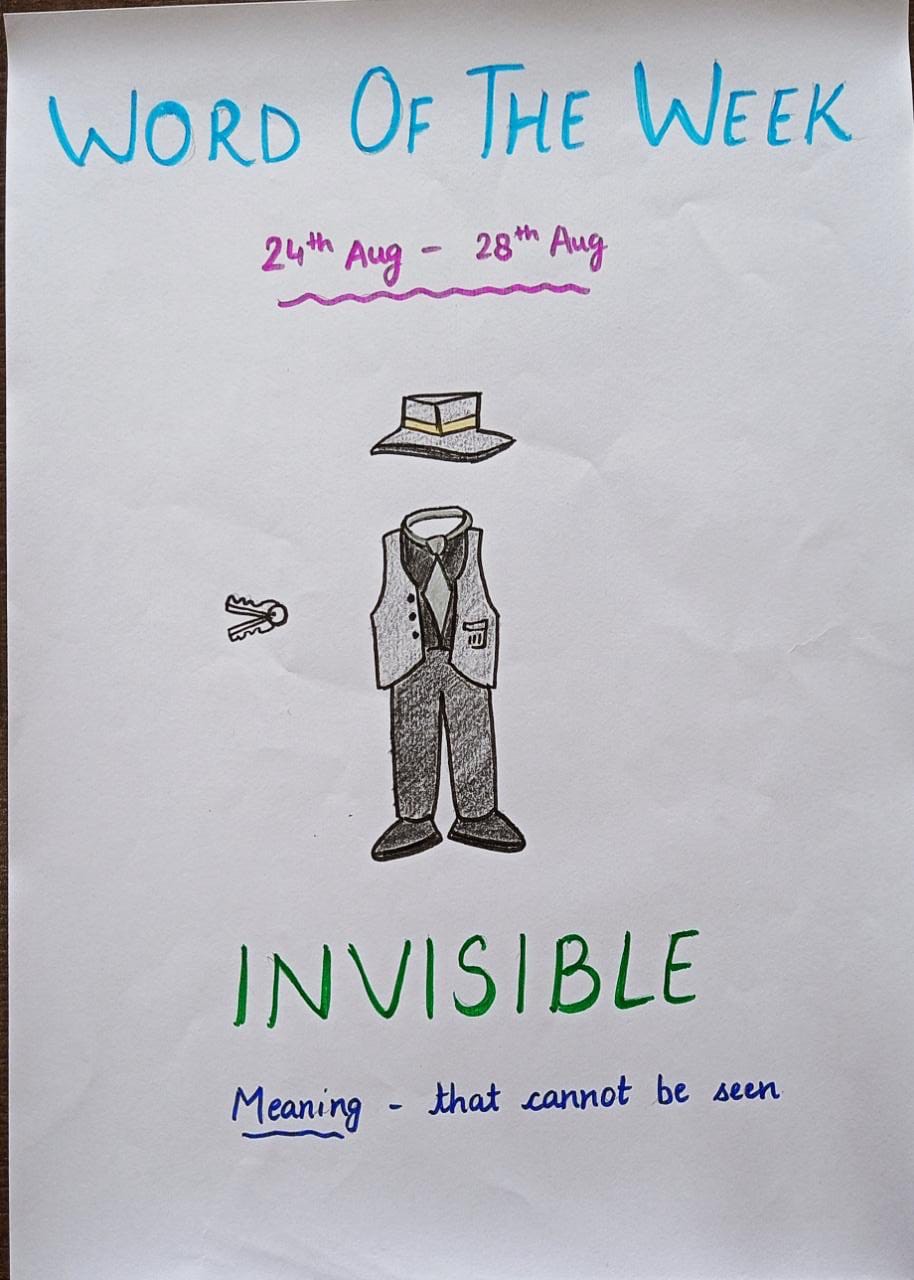 WORD OF THE WEEK
24th Aug - 28th Aug
INVISIBLE
Meaning - that cannot be seen